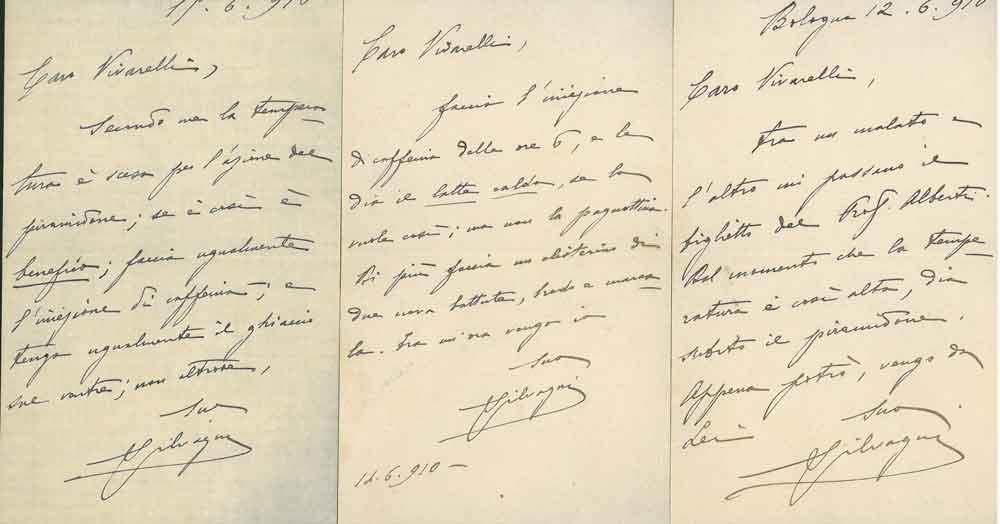 .6.910
Caro Vivarelli,
Secondo me la tempera
tura è scesa per l'azione del
piramidone; se è così è
benefico; faccia ugualmente
l'iniezione di caffeina; e
tenga ugualmente il ghiaccio
sul ventre; non altrove,
Suo
Silvagni
Caro Vivarelli,
faccia l'iniezione
di caffeina delle ore 6, e le
dia il latte caldo, se lo
vuole così; ma non la pagnottina.
Di più faccia un clisterino di
due uova battute, brodo e marsa
la. Tra un'ora vengo io
Suo
Silvagni
12.6.910
Bologna 12.6.910
Caro Vivarelli,
tra un malato e
l'altro mi passano il
biglietto del Prof. Alberti.
Dal momento che la tempe
ratura è così alta, dia
subito il piramidone.
Appena potrò, vengo da
Lei
Suo
Silvagni